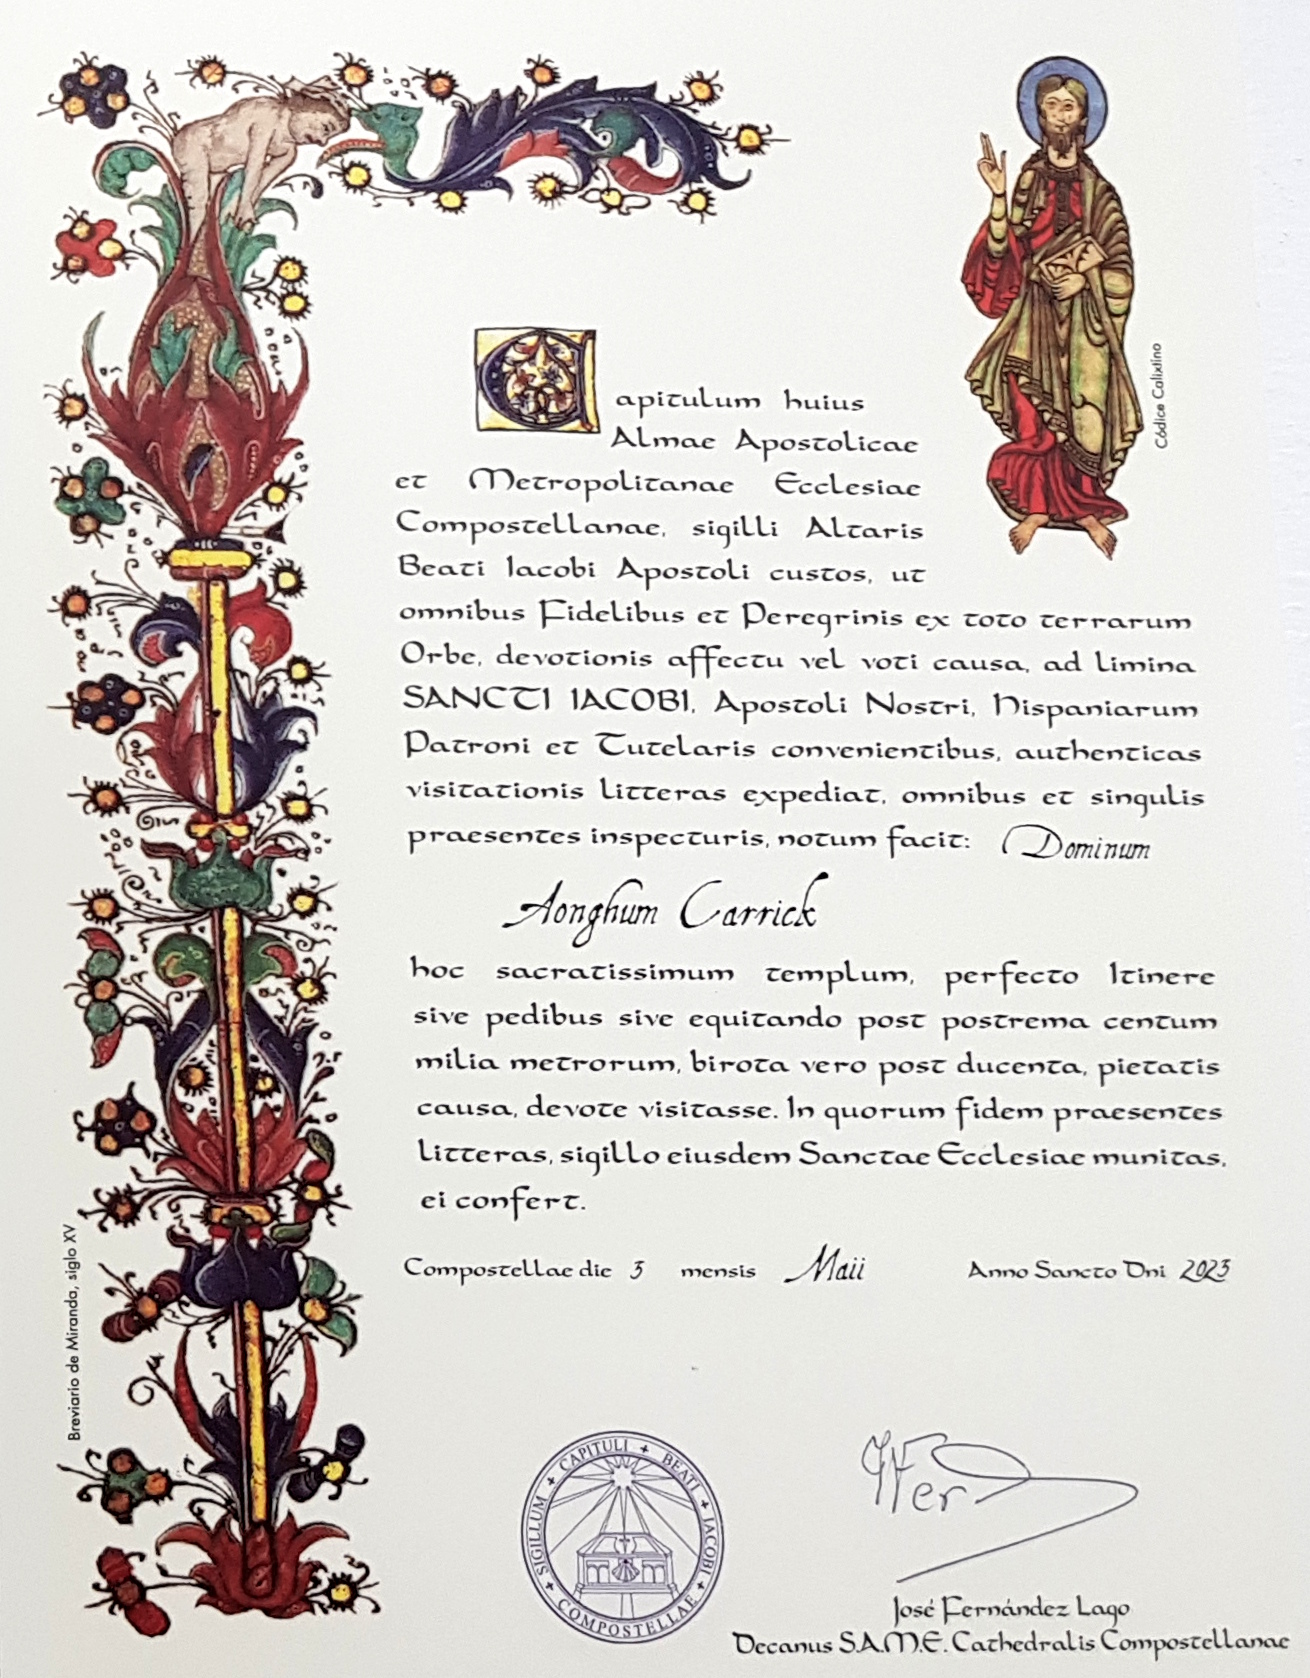 Códice Calixtino
Capitulum huius
Almae Apostolicae
et Metropolitanae Ecclesiae
Compostellanae, sigilli Altaris
Beati Iacobi Apostoli custos, ut
omnibus Fidelibus et Peregrinis ex toto terrarum
Orbe, devotionis affectu vel voti causa, ad limina
SANCTI IACOBI, Apostoli Nostri, Hispaniarum
Patroni et Tutelaris convenientibus, authenticas
visitationis litteras expediat, omnibus et singulis
praesentes inspecturis, notum facit: Dominum
Aonghum Carrick
hoc sacratissimum templum, perfecto Itinere
sive pedibus sive equitando post postrema centum
milia metrorum, birota vero post ducenta, pietatis
causa, devote visitasse. In quorum fidem praesentes
litteras, sigillo eiusdem Sanctae Ecclesiae munitas,
ei confert.
Compostellae die 3 mensis Maii Anno Sancto Dni 2023
Breviario de Miranda, siglo XV
SIGILLUM + CAPITULI + BEATI + IACOBI + COMPOSTELLAE +
José Fernández Lago
Decanus S.A.M.E. Cathedralis Compostellanae